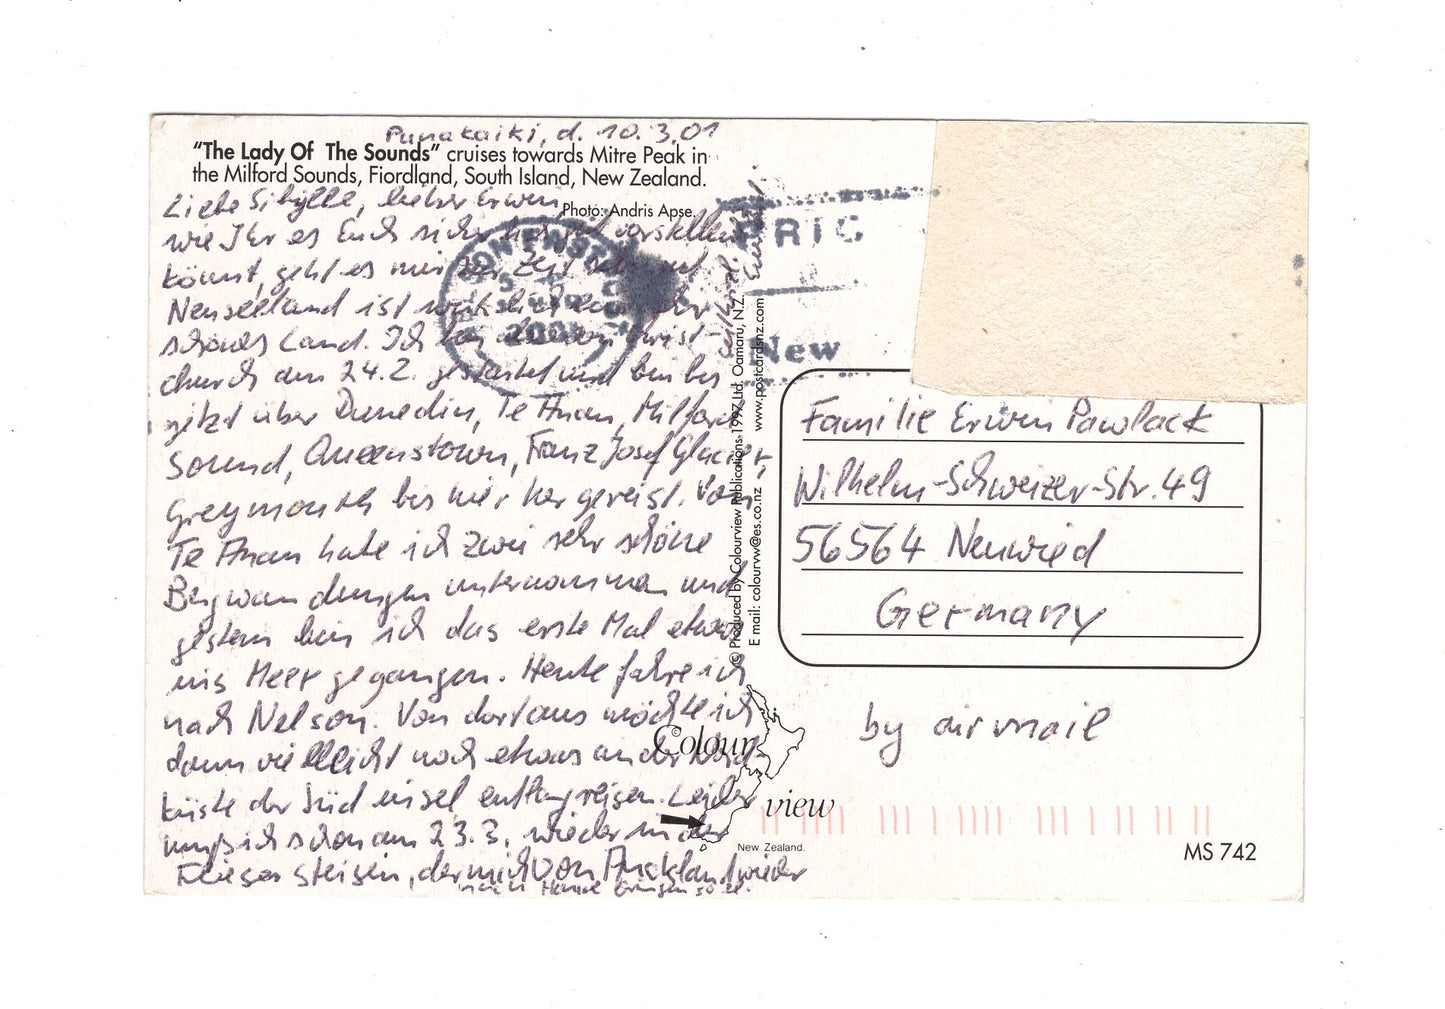 Punakaiki, d. 10.3.01
"The Lady Of The Sounds" cruises towards Mitre Peak in
the Milford Sounds, Fiordland, South Island, New Zealand.
Photo: Andris Apse.
Liebe Sibylle, lieber Erwin,
wie Ihr es Euch sicher vorstellen
könnt, geht es mir zur Zeit sehr gut
Neuseeland ist wirklich ein sehr
schönes Land. Ich bin also von Christ-
church am 24.2. gestartet und bin bis
jetzt über Dunedin, Te Anau, Milford
Sound, Queenstown, Franz Josef Glacier,
Greymouth bis hier her gereist. Von
Te Anau habe ich zwei sehr schöne
Bergwanderungen unternommen und
gestern bin ich das erste Mal etwas
ins Meer gegangen. Heute fahre ich
nach Nelson. Von dort aus möchte ich
dann vielleicht noch etwas an der Nord-
küste der Südinsel entlangreisen. Leider
muß ich schon am 23.3. wieder in den
Flieger steigen, der mich von Auckland wieder
nach Hause bringen soll.
Seid herzl.
2001
New
© Produced by Colourview Publications 1997 Ltd. Oamaru, N.Z.
E mail: colourvw@es.co.nz www.postcardsnz.com
Familie Erwin Pawlack
Wilhelm-Schweizer-Str. 49
56564 Neuwied
Germany
by airmail
Colour
view
New Zealand.
MS 742